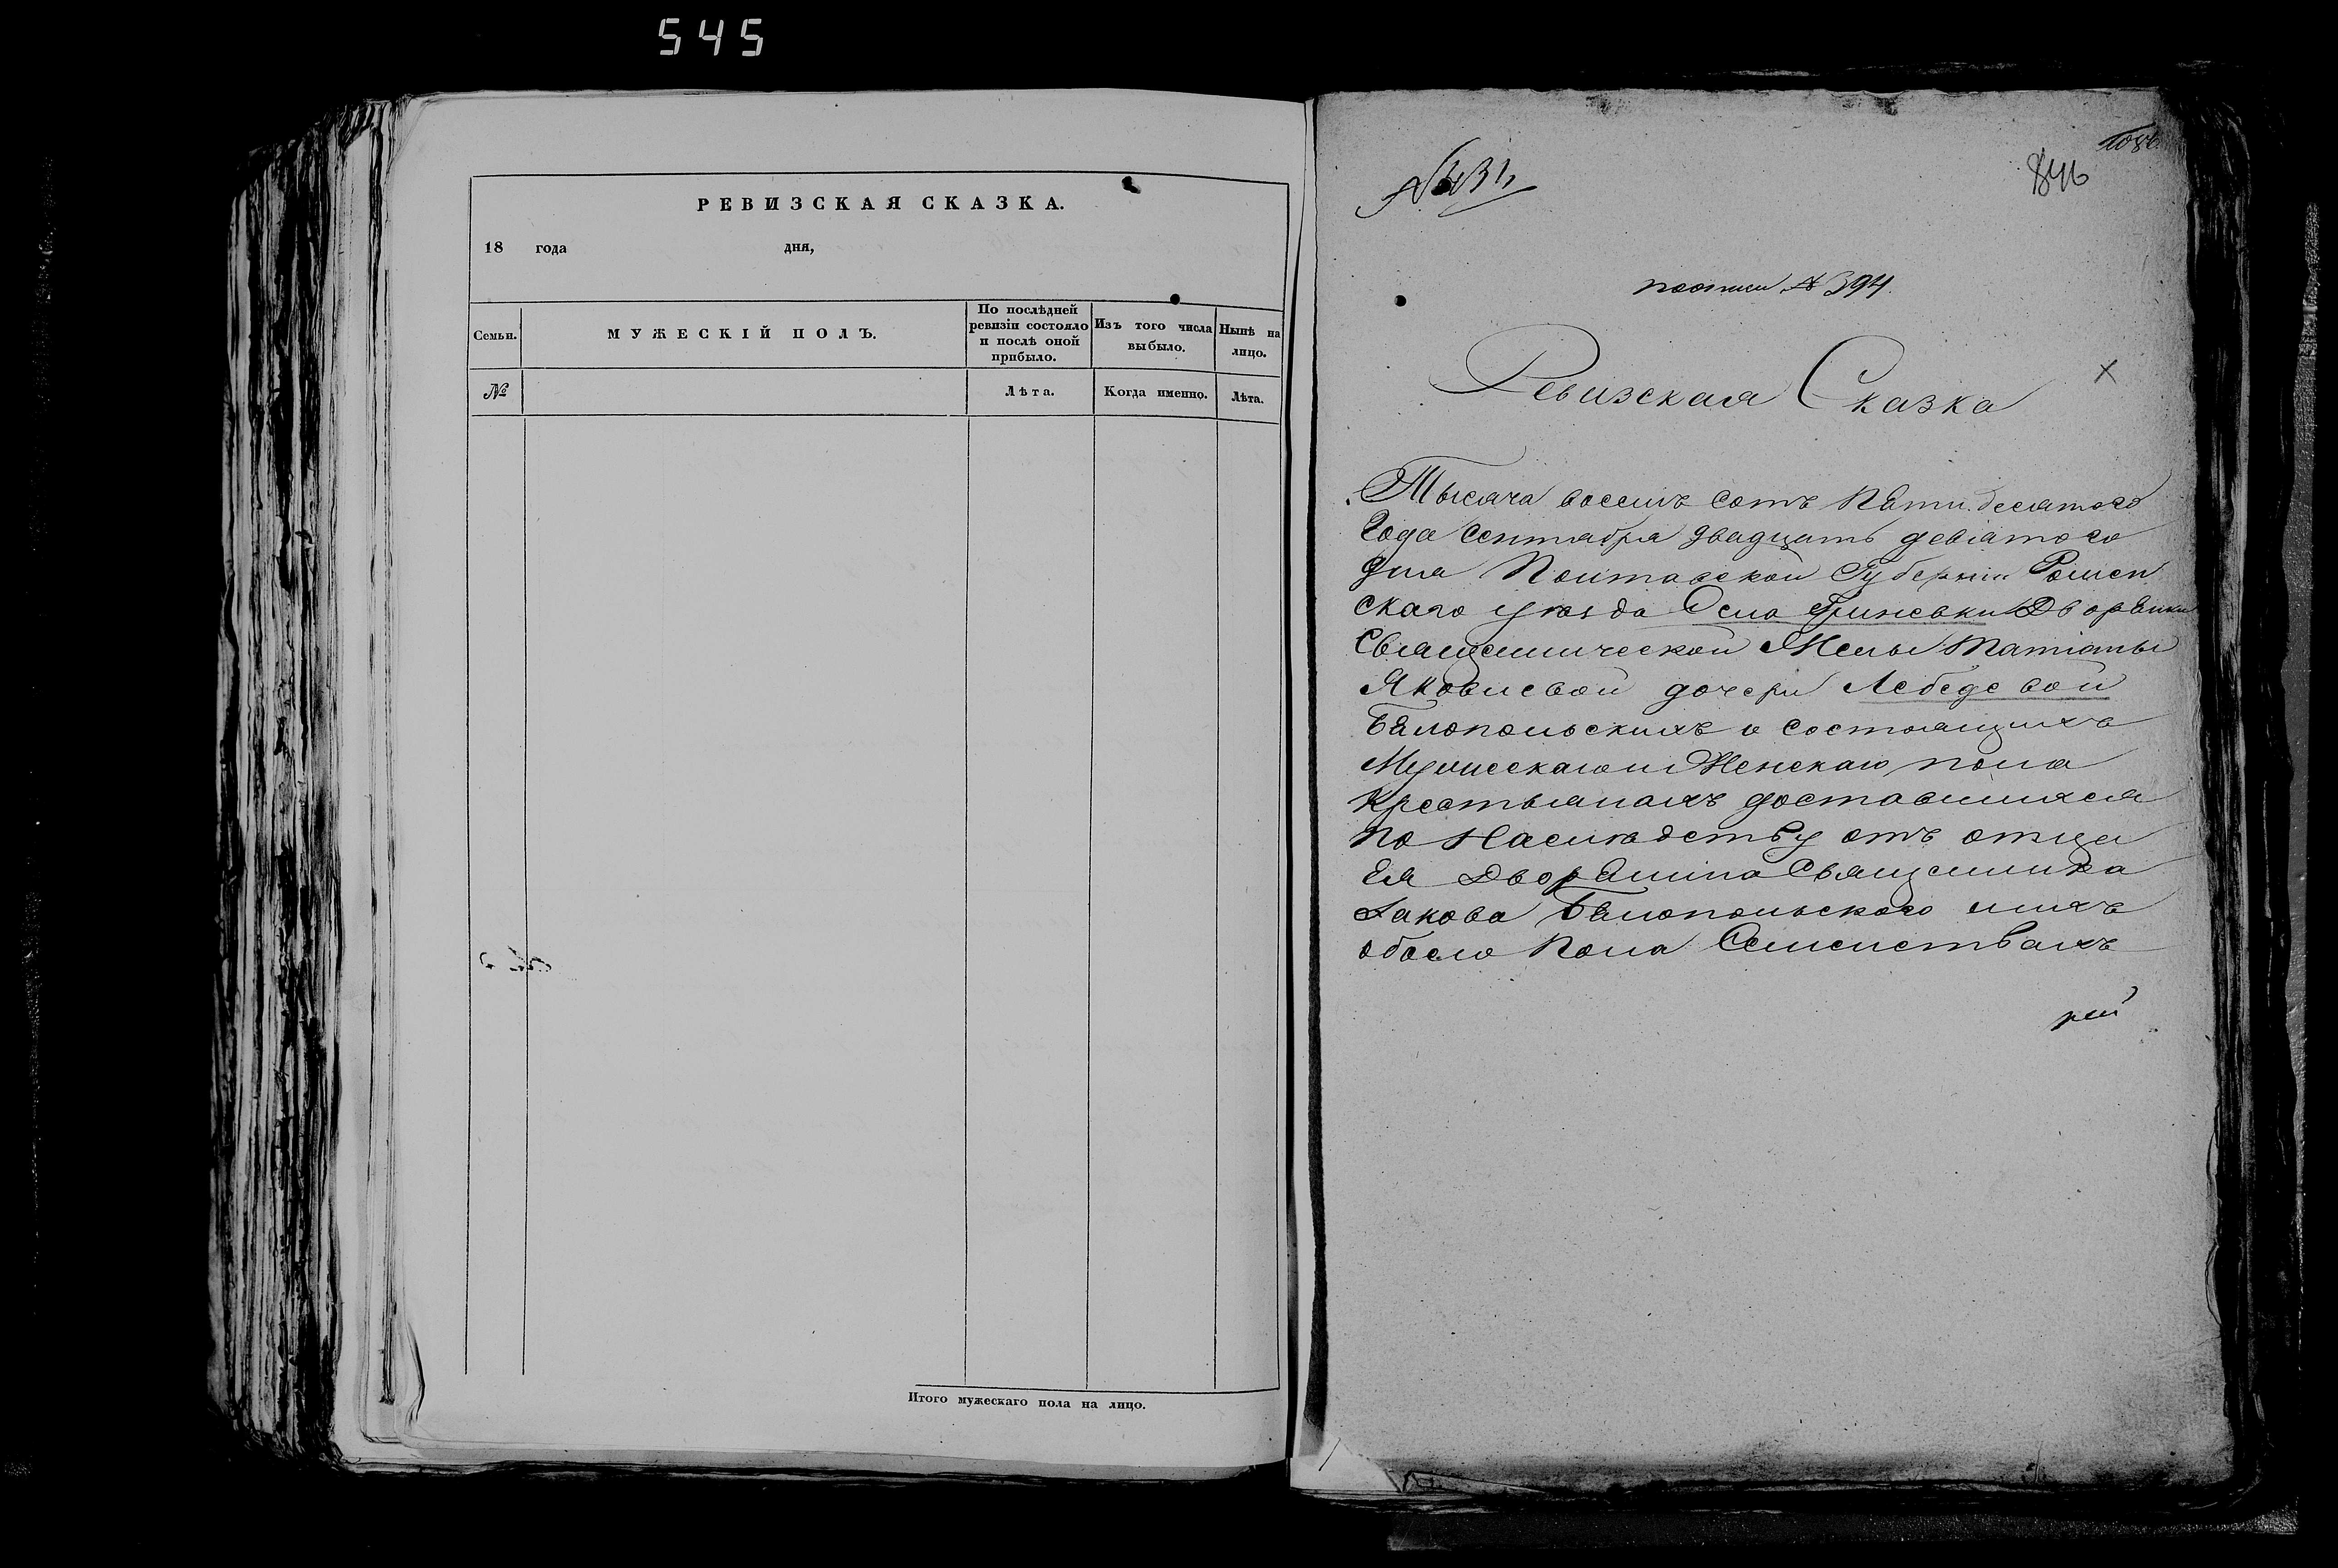 545
РЕВИЗСКАЯ СКАЗКА.
18 года дня,
Семьи.
МУЖЕСКІЙ ПОЛЪ.
По послѣдней ревизіи состояло и послѣ оной прибыло.
Изъ того числа выбыло.
Нынѣ на лицо.
№
Лѣта.
Когда именно.
Лѣта.
Итого мужескаго пола на лицо.
№431,
846
поописи № 394.
Ревизская Сказка
Тысяча восемъ сотъ Пяти десятого
Года Сентября двадцать девіатого
дня Полтавской Губерніи Ромен
скаго уѣзда Села Гриневки Дворянки
Священнической Жены Татіаны
Яковлевой дочери Лебедевой
Бѣлопольскихъ о состоящихъ
Мужескаго и Женскаго пола
Крестьянахъ доставшихся
по Наслѣдству отъ отца
Ея Дворянина Священника
Іакова Бѣлопольского
обоего Пола Семействахъ